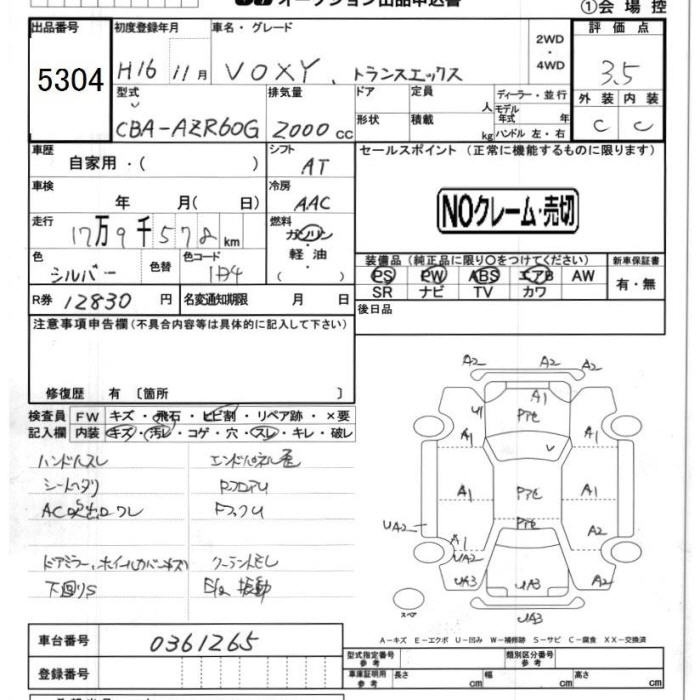 オークション出品申込書 ①会場控
出品番号 初度登録年月 車名・グレード 2WD・4WD 評価点
5304 H16 11月 VOXY トランスエックス 3.5
型式 排気量 ドア 定員 人 ディーラー・並行 外装 内装
CBA-AZR60G 2000cc 形状 積載 kg モデル年式 年 ハンドル 左・右 C C
車歴 シフト セールスポイント (正常に機能するものに限ります)
自家用・( ) AT
車検 年 月( 日) 冷房 AAC
NOクレーム・売切
走行 17万9千578km 燃料 ガソリン・軽油・( )
色 シルバー 色替 色コード 1D4
装備品 (純正品に限り○をつけてください) 新車保証書
PS PW ABS エアB AW 有・無
SR ナビ TV カワ
R券 12830円 名変通知期限 月 日 後日品
注意事項申告欄 (不具合内容等は具体的に記入して下さい)
修復歴 有 〔箇所 〕
検査員 FW キズ・飛石・ヒビ割・リペア跡・×要
記入欄 内装 キズ・汚レ・コゲ・穴・スレ・キレ・破レ
ハンドルスレ エンドパネル歪
シートヘタリ RフロアU
AC吹出口ワレ FスクU
ドアミラー、ホイールカバーキズ クーラントモレ
下回りS E/g 振動
A2 A2 A2
A1
U1 Pアセ
A1 A1
A1 Pアセ A1
UA2 Pアセ A2
A1
UA2
UA3 UA3 A2
スペア UA3
A-キズ E-エクボ U-凹み W-補修跡 S-サビ C-腐食 XX-交換済
車台番号 0361265
型式指定番号 参考 類別区分番号 参考
登録番号 車庫証明用 参考 長さ cm 幅 cm 高さ cm